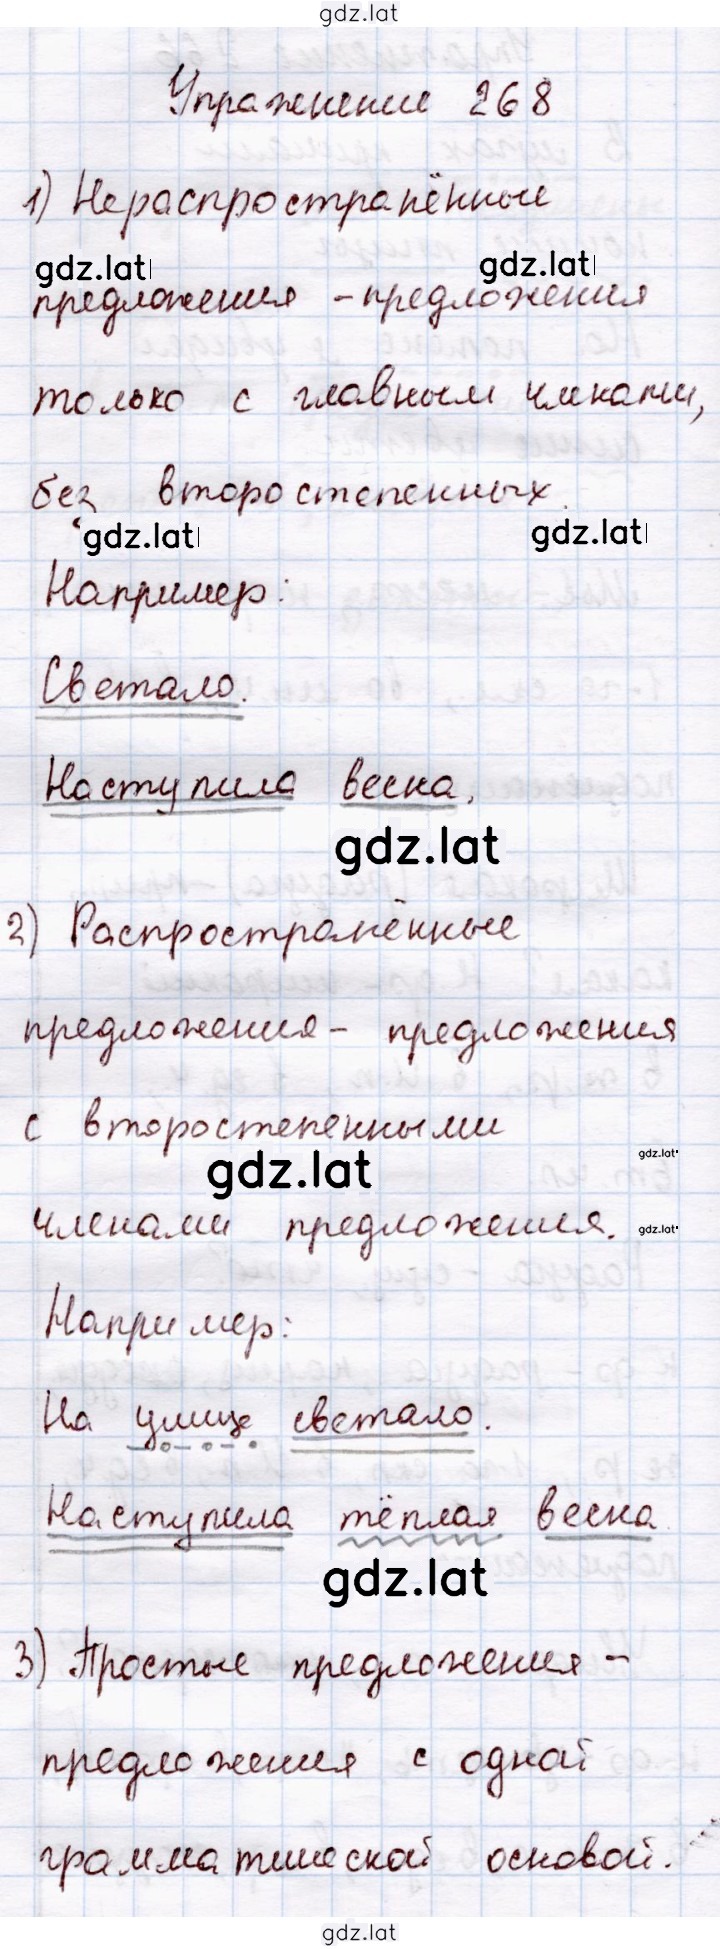 gdz.lat
Упражнение 268
1) Нераспространённые
gdz.lat gdz.lat
предложения - предложения
только с главным членами,
без второстепенных.
gdz.lat gdz.lat
Например:
Светало.
Наступила весна.
gdz.lat
2) Распространённые
предложения - предложения
с второстепенными
gdz.lat
gdz.lat
членами предложения.
gdz.lat
Например:
На улице светало.
Наступила тёплая весна
gdz.lat
3) Простые предложения -
предложения с одной
грамматической основой.
gdz.lat